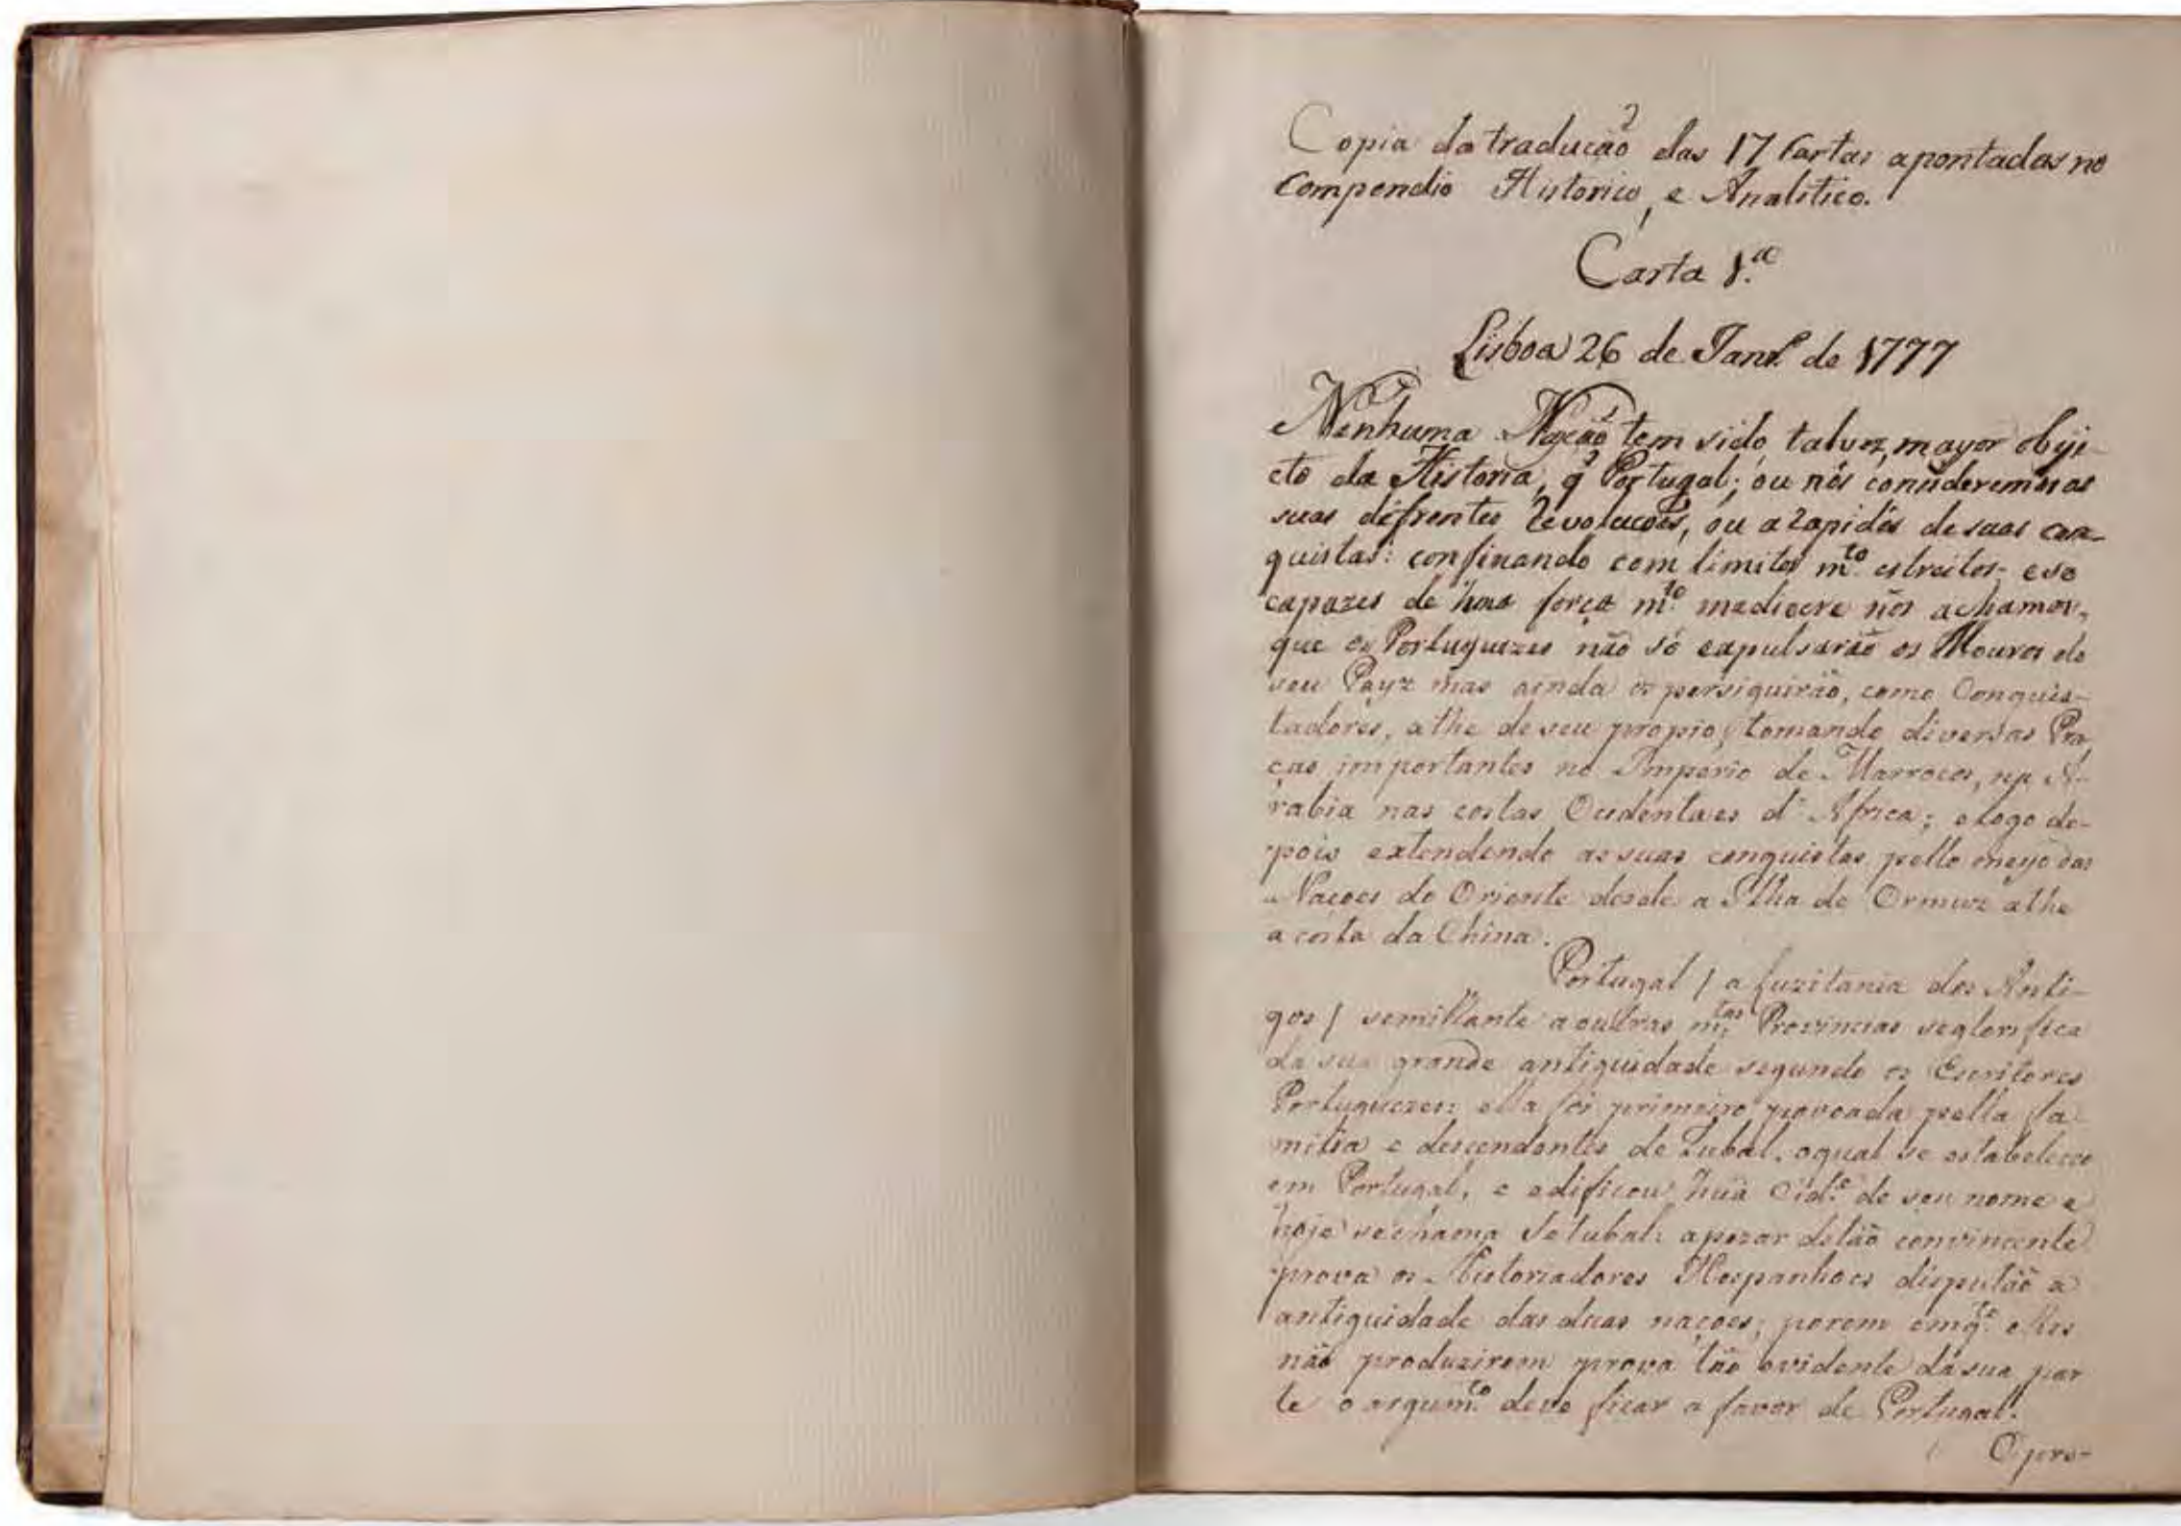 Copia da traducão das 17 Cartas apontadas no
Compendio Historico, e Analitico.
Carta 1.ª
Lisboa 26 de Janr.º de 1777
Nenhuma Nação tem sido, talvez, mayor obje-
cto da Historia, q̃ Portugal; ou nós consideremos as
suas difrentes revoluçoẽs, ou a rapidés de suas con-
quistas: confinando com limites m.to estreitos; e so
capazes de huã força m.to mediocre nós achamos,
que os Portuguezes não só expulsarão os Mouros do
seu Payz mas ainda os persiguirão, como Conquis-
tadores, athe de seu propio; tomando diversas Pra-
ças importantes no Imperio de Marrocos, na A-
rabia nas costas Ocidentaes d'Africa; e logo de-
pois extendendo as suas conquistas pello meyo das
Naçoes do Oriente desde a Ilha de Ormuz athe
a costa da China.
Portugal / a Luzitania dos Anti-
gos / semilhante a outras m.tas Provincias se glorifica
da sua grande antiguidade segundo os Escritores
Portuguezes: ella foi primeiro povoada pella fa-
milia e descendentes de Tubal, o qual se estabeleceo
em Portugal, e edificou huã Cid.e de seu nome e
hoje se chama Setubal: apezar de tão convincente
prova os Historiadores Hespanhoes disputão a
antiguidade das duas naçoes; porem emq.to elles
não produzirem prova tão evidente da sua par
te o argum.to deve ficar a favor de Portugal.
O pro-